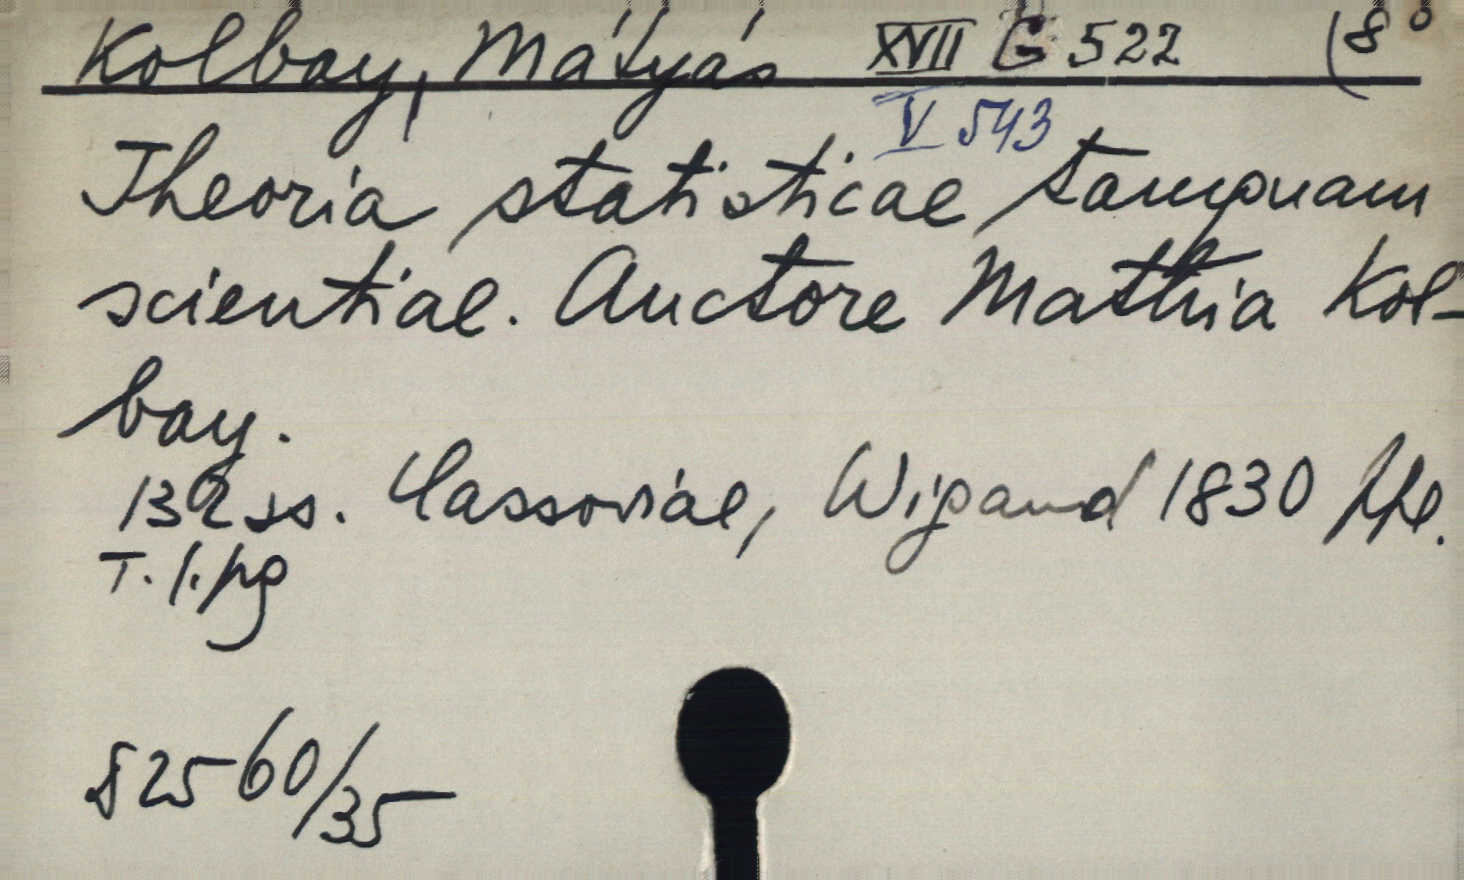 Kolbay, Mátyás XVII G 522 (8°
V 543
Theoria statisticae tamquam
scientiae. Auctore Mathia Kol-
bay.
132 ss. Cassoviae, Wigand 1830 ppe.
T. l. pg
82560/35